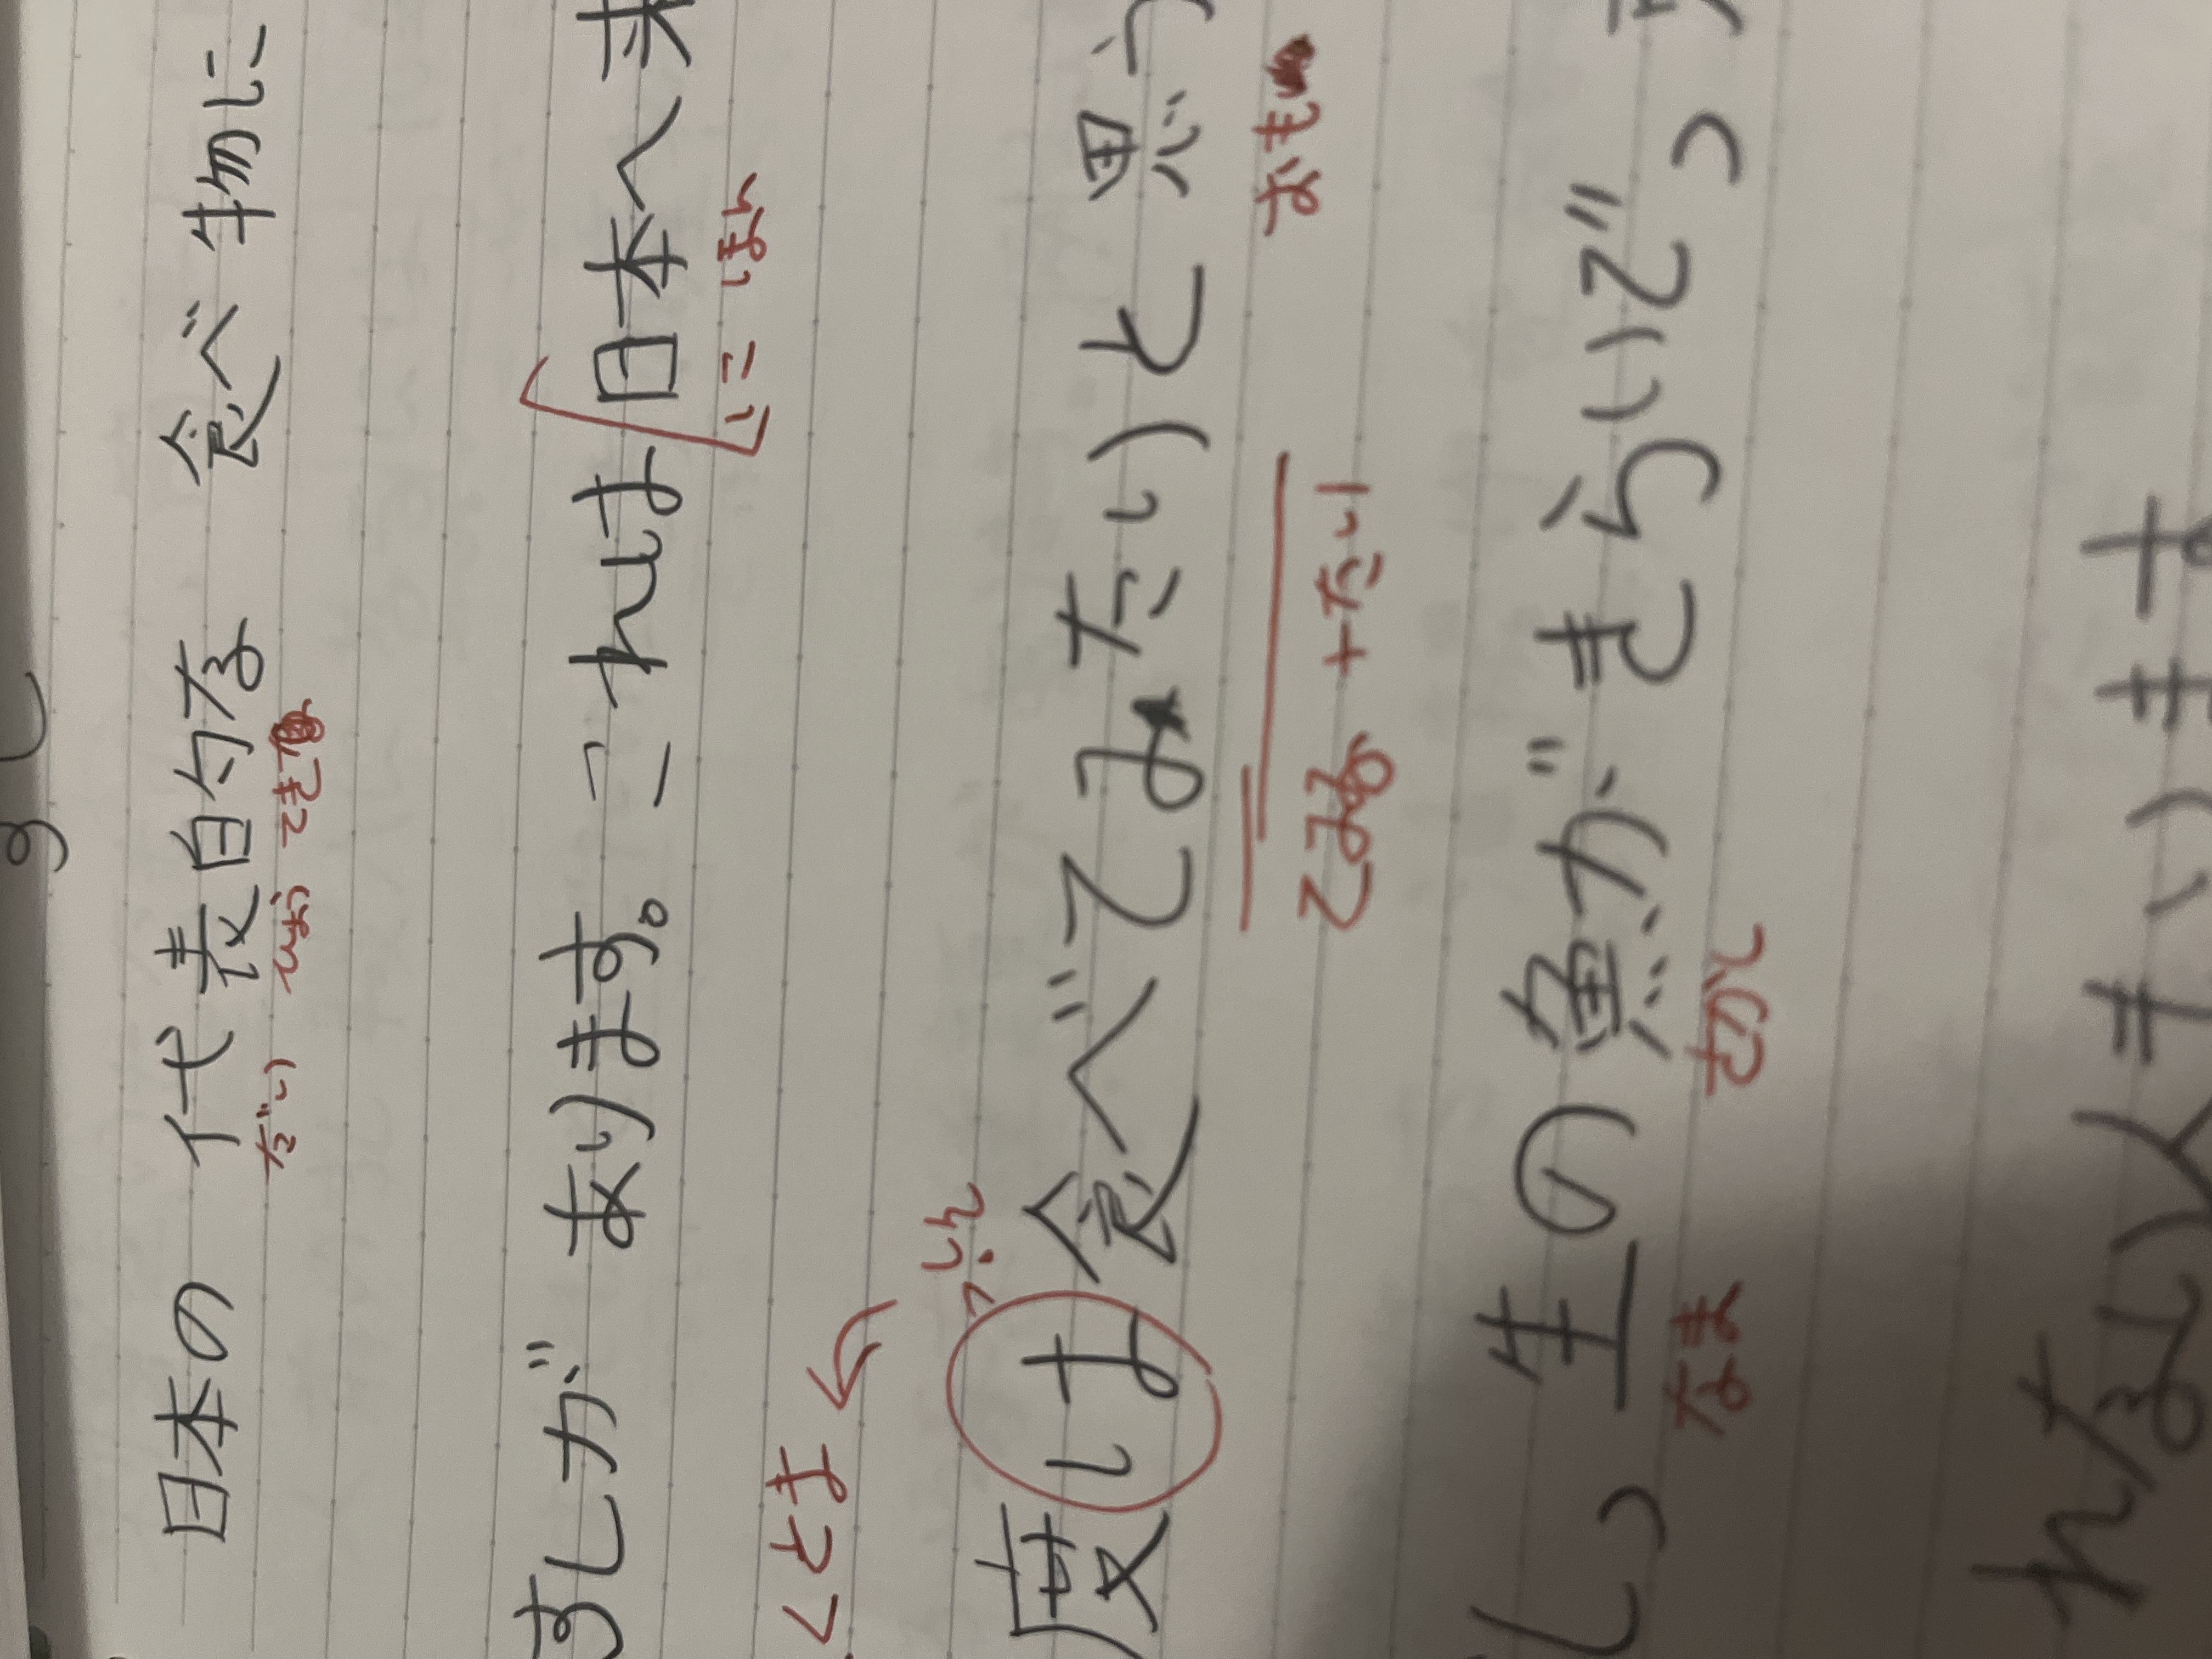 日本の 代表的な 食べ物に
だい ひょう てき
すしが あります。これは日本へ来
にほん
くとも
度は 食べてみたいと思
てみる+たい
おも
生の魚がきらいで
なま
れない人もいます